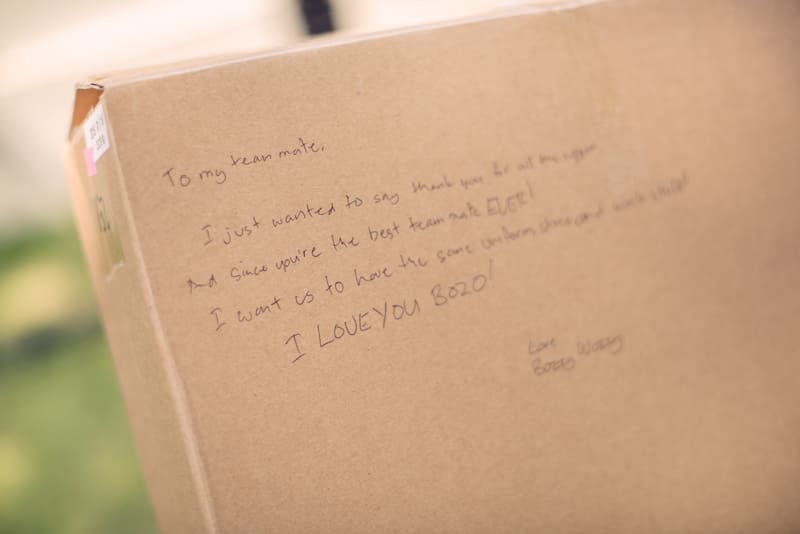 To my team mate,
I just wanted to say thank you for all the support
And since you're the best team mate EVER!
I want us to have the same uniform, shoes and
I LOVE YOU BOZO!
Love
Bozzy Wozzy